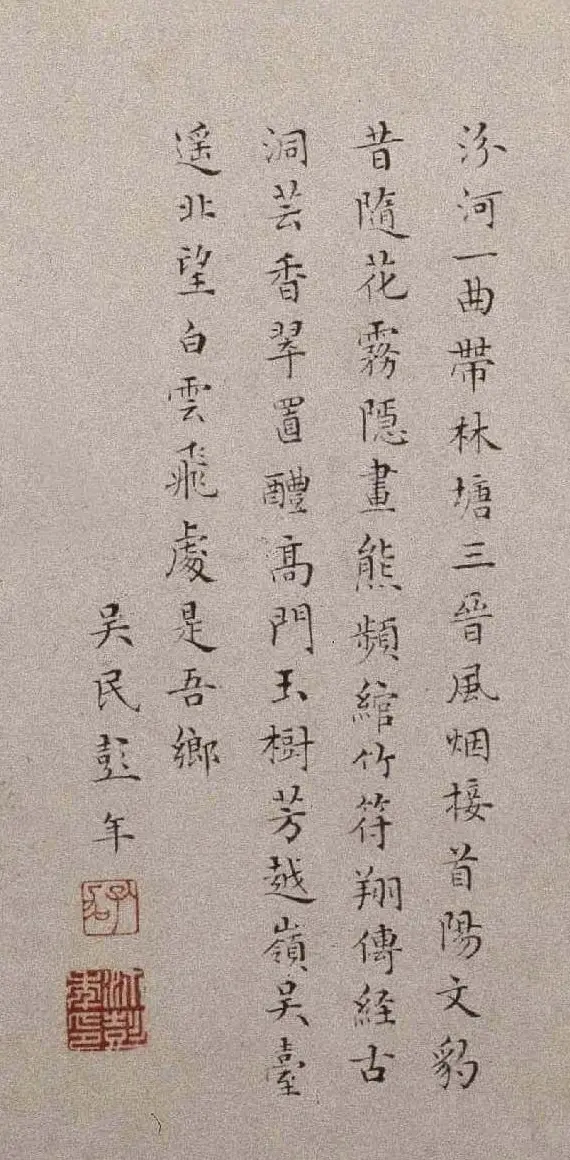 汾河一曲帶林塘三晉風烟接首陽文豹
昔隨花霧隱畫熊頻綰竹符翔傳經古
洞芸香翠置醴高門玉樹芳越嶺吴臺
遥北望白雲飛處是吾鄉
吴民彭年